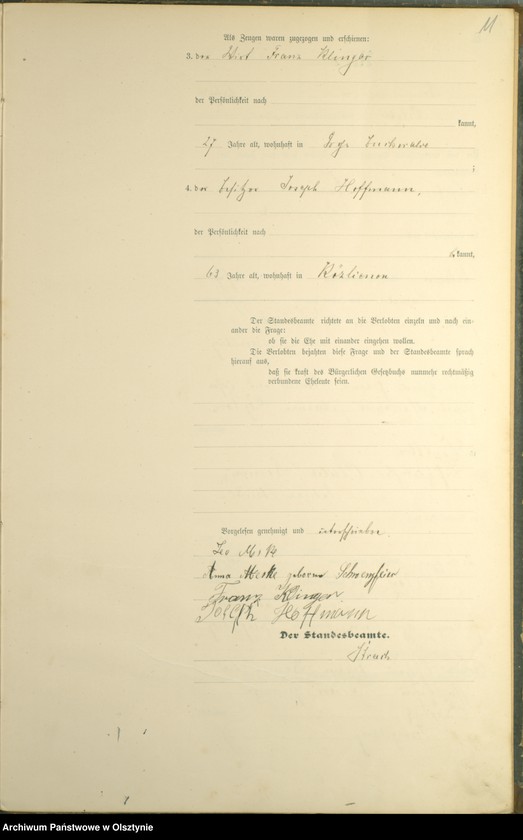 11
Als Zeugen waren zugezogen und erschienen:
3. der Wirt Franz Klinger
der Persönlichkeit nach
kannt,
27 Jahre alt, wohnhaft in Groß
;
4. der Besitzer Joseph Hoffmann,
der Persönlichkeit nach
kannt,
63 Jahre alt, wohnhaft in
Der Standesbeamte richtete an die Verlobten einzeln und nach ein-
ander die Frage:
ob sie die Ehe mit einander eingehen wollen.
Die Verlobten bejahten diese Frage und der Standesbeamte sprach
hierauf aus,
daß sie kraft des Bürgerlichen Gesetzbuchs nunmehr rechtmäßig
verbundene Eheleute seien.
Vorgelesen genehmigt und unterschrieben
Leo
Anna geborene
Franz Klinger
Joseph Hoffmann
Der Standesbeamte.
Archiwum Państwowe w Olsztynie